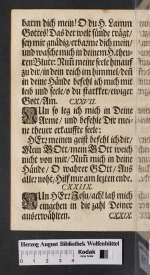 barm dich mein! O du H. Lamm
Gottes! Das der welt sünde trägt/
sey mir gnädig/erbarm dich mein/
und wasche mich in deinem H. theu-
ren Blute: Nim meine seele hinauf
zu dir/in dein reich im himmel/denn
in deine Hände befehl ich mich mit
leib und seele/ du starcker/ewiger
Gott/Am. CXXVII.
NUn so leg ich mich in Deine
Arme/ und befehle Dir mei-
ne theuer erkauffte seele:
HErr/meinen geist befehl ich dir/
Mein GOtt/mein GOtt weich
nicht von mir/Nim mich in deine
Hände/ O wahrer GOtt/ Aus
aller noht/Hilff mir am letzten ende.
CXXIIX.
NUn HErr Jesu/ach! laß mich
eingehen in die zahl Deiner
auserwählten. CXXIX.
Herzog August Bibliothek Wolfenbüttel
Kodak